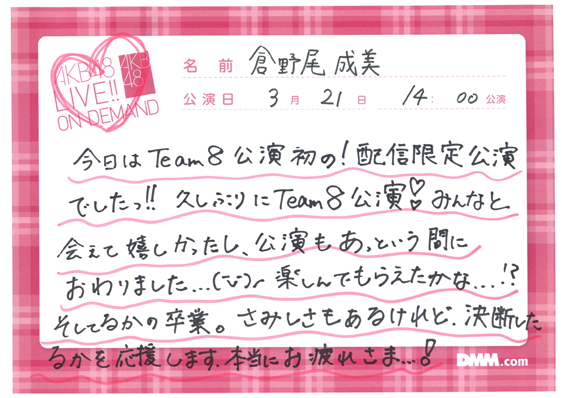 AKB48
LIVE!!
ON DEMAND
AKB
48
名前 倉野尾成美
公演日 3月21日 14:00公演
今日はTeam8公演初の!配信限定公演
でしたっ!! 久しぶりにTeam8公演♡みんなと
会えて嬉しかったし、公演もあっという間に
おわりました...(;;)楽しんでもらえたかな....!?
そしてるかの卒業。さみしさもあるけれど、決断した
るかを応援します、本当にお疲れさま...!
DMM.com